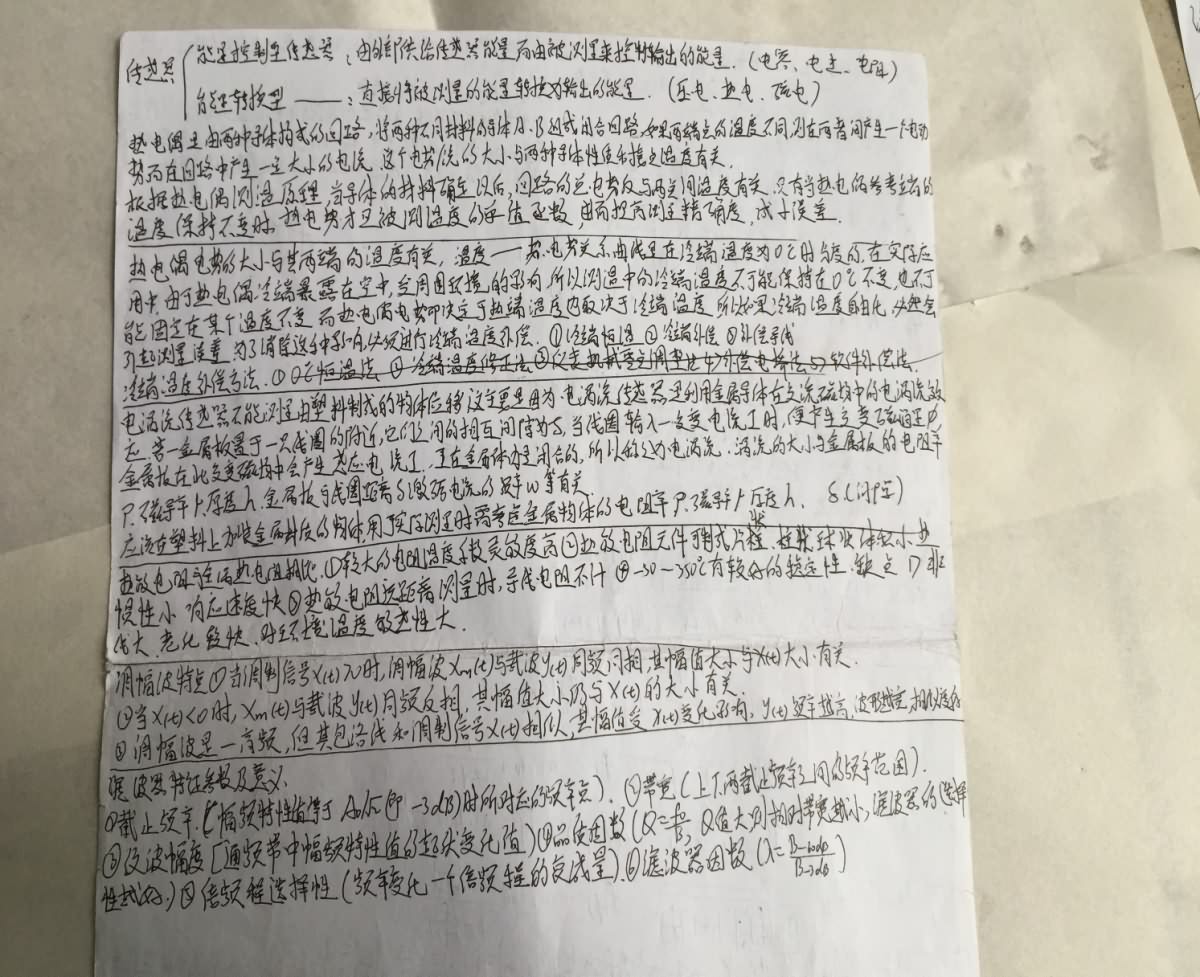 传感器 能量控制型传感器：由外部供给传感器能量而由被测量来控制输出的能量.（电容、电感、电阻）
能量转换型 ——：直接将被测量的能量转换为输出的能量.（压电、热电、磁电）
热电偶是由两种导体构成的回路，将两种不同材料的导体A、B组成闭合回路，如果两端点的温度不同，则在两者间产生一个电动
势而在回路中产生一定大小的电流，这个电势/流的大小与两种导体性质和接点温度有关.
根据热电偶测温原理，当导体的材料确定以后，回路的总电势仅与两端间温度有关.只有当热电偶参考端的
温度保持不变时，热电势才是被测温度的单值函数，由而提高测量精确度，减小误差.
热电偶电势的大小与其两端的温度有关，温度——热电势关系曲线是在冷端温度为0℃时分度的.在实际应
用中，由于热电偶冷端暴露在空中，受周围环境的影响，所以测温中的冷端温度不可能保持在0℃不变，也不可
能固定在某个温度不变，而热电偶电势即决定于热端温度也取决于冷端温度，所以如果冷端温度自由化，必然会
引起测量误差.为了消除这种影响必须进行冷端温度补偿. ①冷端恒温 ②冷端补偿 ③补偿导线
冷端温度补偿方法. ①0℃恒温法 ②冷端温度修正法 ③仪表机械零点调整法 ④补偿电桥法 ⑤软件补偿法.
电涡流传感器不能测量由塑料制成的物体位移这主要是因为电涡流传感器是利用金属导体在交流磁场中的电涡流效
应.若一金属板置于一只线圈的附近，它们之间的相互间隔为δ，当线圈输入一交变电流I时，便产生交变磁通量Φ
金属板在此交变磁场中会产生感应电流I，I在金属体内是闭合的，所以称之为电涡流.涡流的大小与金属板的电阻率
ρ.磁导率μ厚度h.金属板与线圈距离δ激励电流的频率w等有关
应该在塑料上加些金属材质的物体，用于实际测量时需考虑金属物体的电阻率ρ.磁导率μ厚度h. δ（间隔）
热敏电阻与金属热电阻相比.①较大的电阻温度系数灵敏度高②热敏电阻元件可制成片状、柱状球状体积小热
惯性小 响应速度快③热敏电阻远距离测量时，导线电阻不计 ④-50～350℃有较好的稳定性.缺点 1）非
线大 老化较快.对环境温度敏感性大.
调幅波特点①当调制信号X(t)>0时，调幅波Xm(t)与载波y(t)同频同相，其幅值大小与X(t)大小有关.
②当X(t)<0时，Xm(t)与载波y(t)同频反相，其幅值大小仍与X(t)的大小有关.
③调幅波是一高频，但其包络线和调制信号X(t)相似，其幅值受X(t)变化影响，y(t)频率越高，波形越密，相似度
滤波器特征参数及意义.
①截止频率.（幅频特性值等于A0/√2（即-3dB）时所对应的频率点）.②带宽（上下两截止频率之间的频率范围）.
③纹波幅度［通频带中幅频特性值的起伏变化值）④品质因数（Q= , Q值大则相对带宽越小，滤波器的选择
性越好.）⑤倍频程选择性（频率变化一个倍频程的衰减量）.⑥滤波器因数（λ=B-60dB/B-3dB）